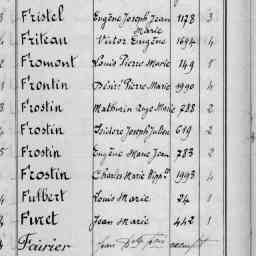 Fristel Eugène Joseph Jean Marie 1178 3
Friteau Victor Eugène 1694 4
Fromont Louis Pierre Marie 149 8
Frontin Désiré Pierre Marie 1990 4
Frostin Mathurin Ange Marie 788 2
Frostin Isidore Joseph Julien 619 2
Frostin Eugène Marie Jean 783 2
Frostin Charles Marie Hippte 1993 4
Fulbert Louis Marie 24 1
Furet Jean Marie 442 1
Fairier Jean